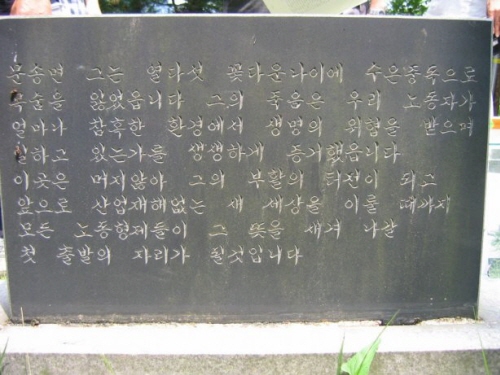 문송면 그는 열다섯 꽃다운나이에 수은중독으로
목숨을 잃었읍니다 그의 죽음은 우리 노동자가
얼마나 참혹한 환경에서 생명의 위협을 받으며
일하고 있는가를 생생하게 증거했읍니다
이곳은 머지않아 그의 부활의 터전이 되고
앞으로 산업재해없는 새 세상을 이룰 때까지
모든 노동형제들이 그 뜻을 새겨 나갈
첫 출발의 자리가 될것입니다